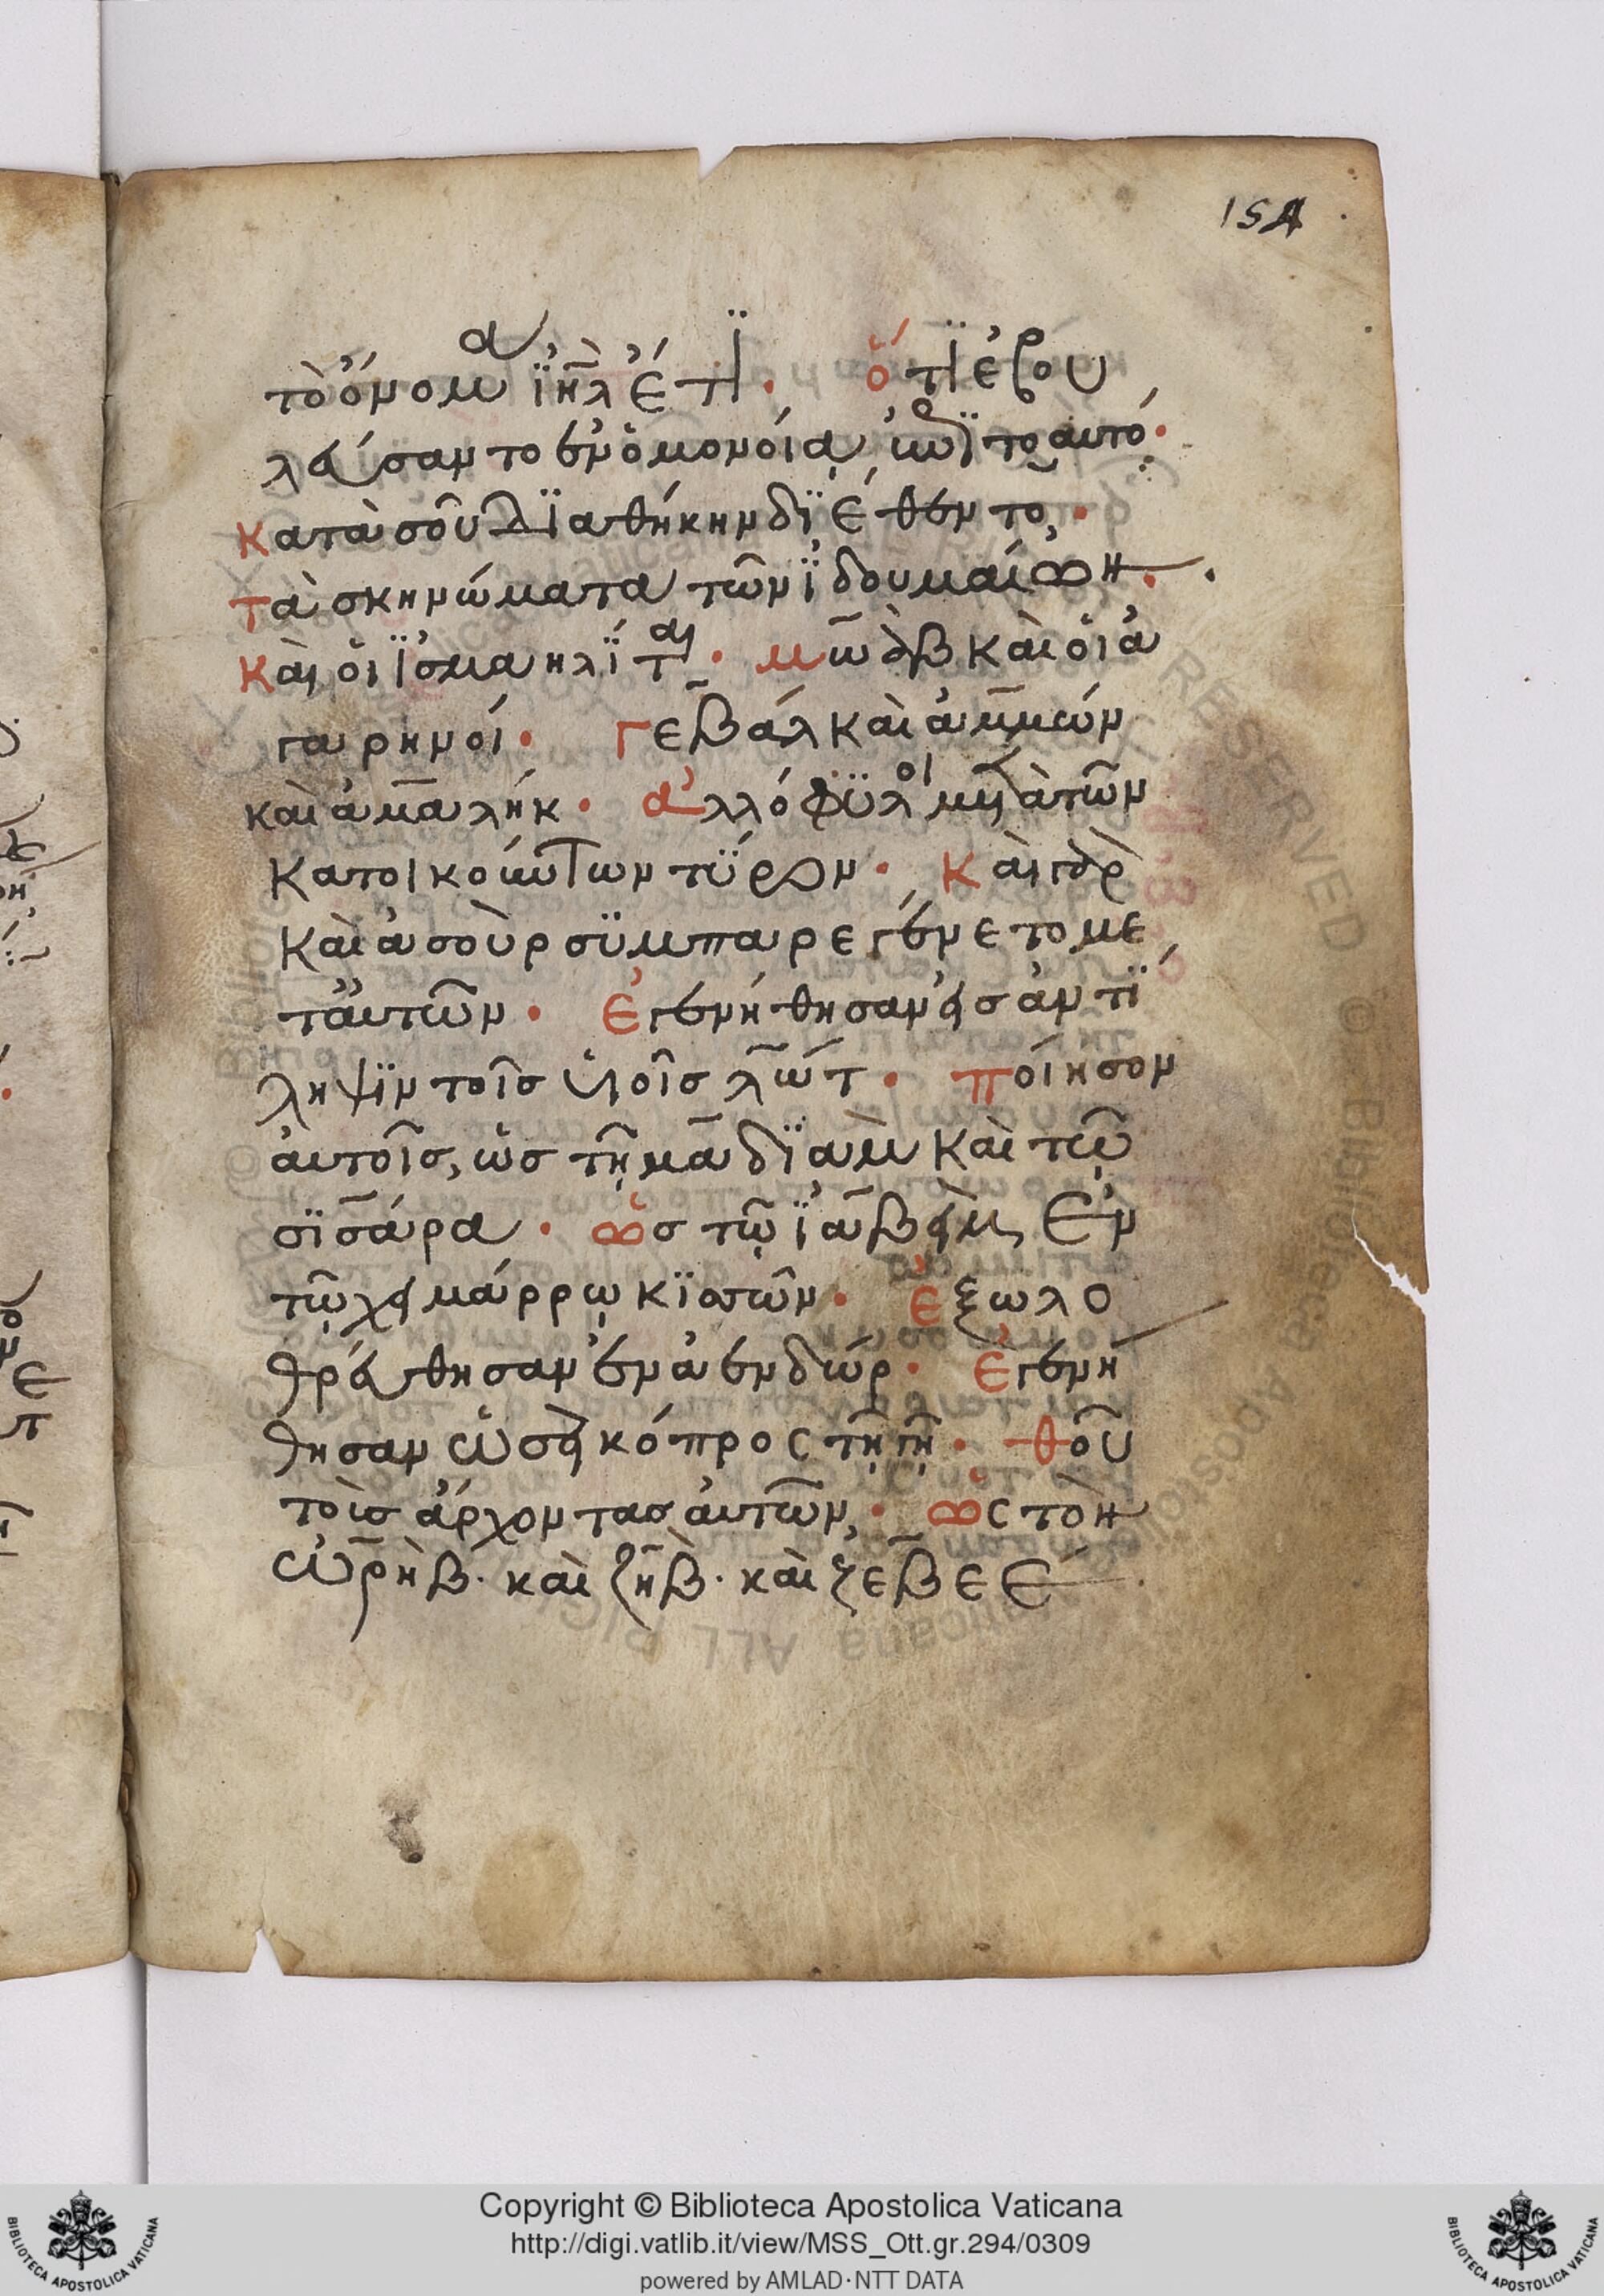 154
τὸ ὄνομα ἰη̅λ ἔτι· ὅτι ἐβου
λεύσαντο ἐν ὁμονοία ἐπὶ το αυτό·
Κατὰ σοῦ διαθήκην διέθεντο·
Τὰ σκηνώματα τῶν ἰδουμαίων·
Καὶ οἱ ἰσμαηλίται· μωὰβ καὶ οἱ ἀ
γαρηνοί· Γεβάλ καὶ ἀμμών
καὶ ἀμαλήκ· ἀλλόφϋλοι μετὰ τῶν
κατοικούντων τύρον· Καὶ γὰρ
καὶ ἀσοὺρ σϋμπαρεγένετο με
τ' ἀυτῶν· Ἐγενήθησαν εἰσ ἀντί
ληψϊν τοῖσ ὑιοῖσ λώτ· ποίησον
ἀυτοῖσ, ὡσ τῆ μαδϊὰμ καὶ τῶ
σϊσάρα· ὡσ τῶ ϊαβεὶμ ἐν
τῶ χειμάρρω κϊσσῶν· ἐξωλο
θρεύθησαν ἐν ἀενδώρ· Ἐγενή
θησαν ὡσεὶ κόπρος τῆ γῆ· θοῦ
τοὺσ ἄρχοντασ ἀυτῶν· ὡς τὸν
ὠρὴβ· καὶ ζὴβ· καὶ ζεβεέ
Copyright © Biblioteca Apostolica Vaticana
http://digi.vatlib.it/view/MSS_Ott.gr.294/0309
powered by AMLAD·NTT DATA